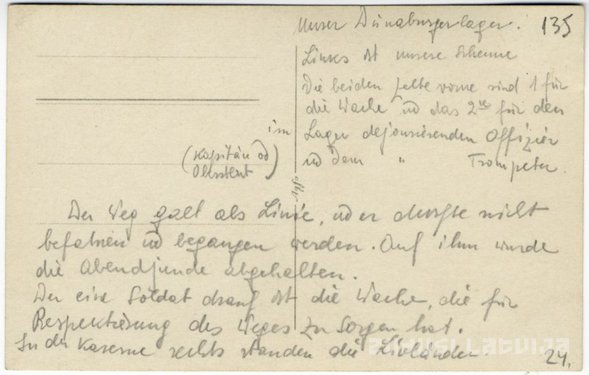 Unser Dünaburgerlager.
135
Links ist unsere Scheune
Die beiden Zelte vorne sind 1 für
die Wache ud das 2te für den
im
Lager dejourierenden Offizier
ud dem " Trompeter.
(Kapitän od
Oberstlent)
Der Weg galt als Linie, ud er durfte nicht
befahren ud begangen werden. Auf ihm wurde
die Abendjunde abgehalten.
Der eine Soldat drauf ist die Wache, die für
Respektierung des Weges zu sorgen hat.
In der Kaserne rechts standen die Livländer
24.